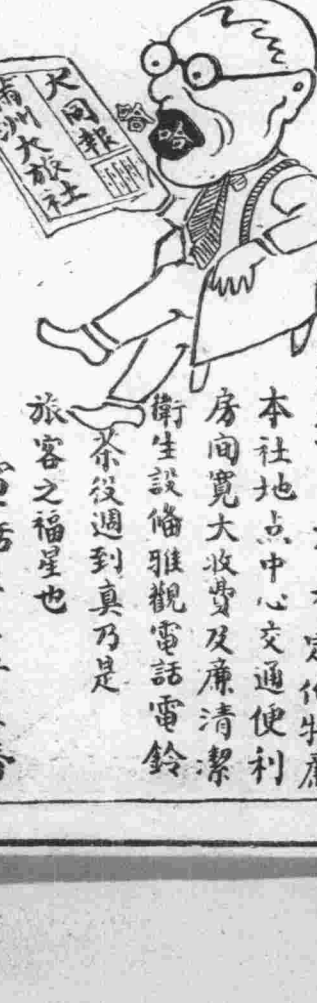 大同報
滿洲大旅社
哈
哈
定價特廉
本社地点中心交通便利
房间寬大收費及廉清潔
衛生設俻雅觀電話電鈴
茶役週到真乃是
旅客之福星也